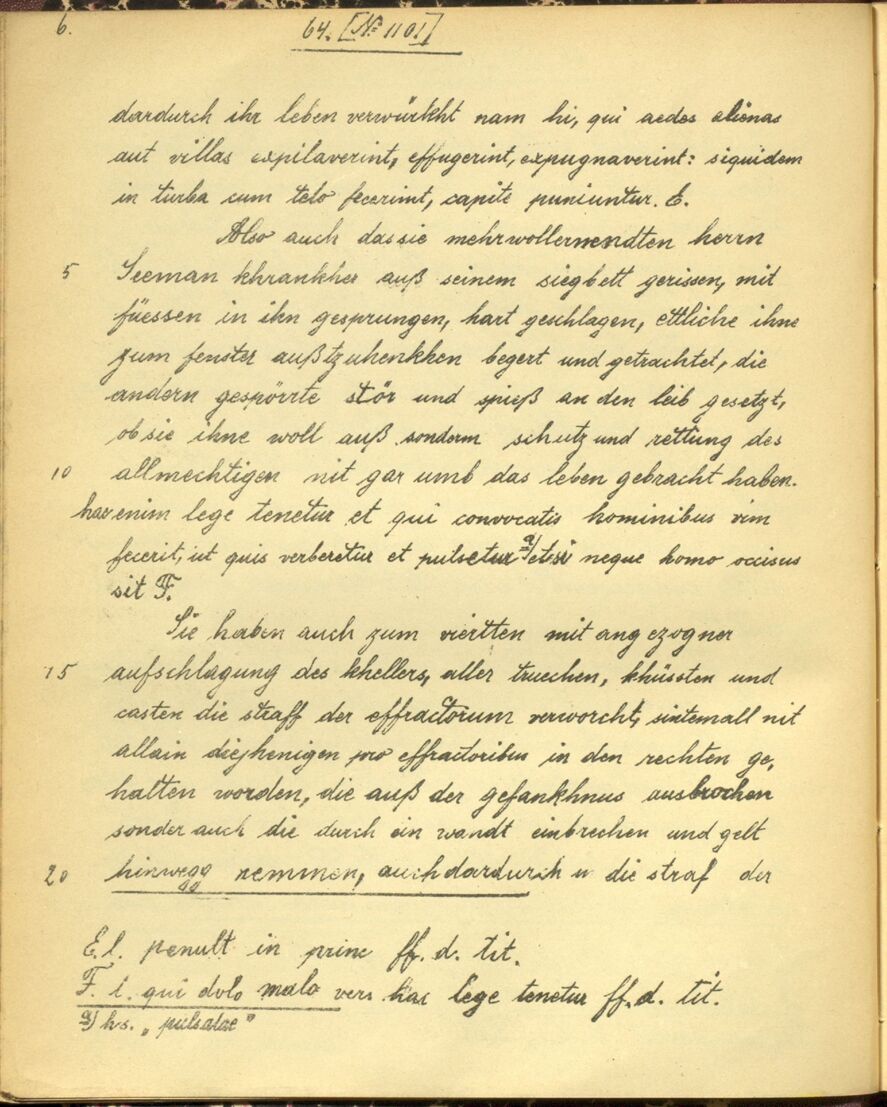 6.
64. [№ 1101]
dardurch ihr leben verwürkht nam hi, qui aedes alienas
aut villas expilaverint, effugerint, expugnaverint: siquidem
in turba cum telo fecerimt, capite puniuntur. E.
Also auch das sie mehrwollernendten herrn
5 Seeman khrankher auß seinem siegbett gerissen, mit
füessen in ihn gesprungen, hart geschlagen, ettliche ihne
zum fenster außtzuhenkhen begert und getrachtet, die
andern gespörrte stör und spieß an den leib gesetzt,
ob sie ihne woll auß sonderm schutz und rettung des
10 allmechtigen nit gar umb das leben gebracht haben.
hac enim lege tenetur et qui convocatis hominibus vim
fecerit, ut quis verberetur et pulsetur a) etsi neque homo occisus
sit F.
Sie haben auch zum viertten mit angezogner
15 aufschlagung des khellers, aller truechen, khüssten und
casten die straff der effractorum verworcht, sintemall nit
allain diejhenigen pro effractoribus in den rechten ge,
halten worden, die auß der gefankhnus ausbrochen
sonder auch die durch ein wandt einbrechen und gelt
20 hinwegg nemmen, auch dardurch die straf der
E. l. penult in princ ff. d. tit.
F. l. qui dolo malo vers hac lege tenetur ff. d. tit.
a) hs. „pulsatae"